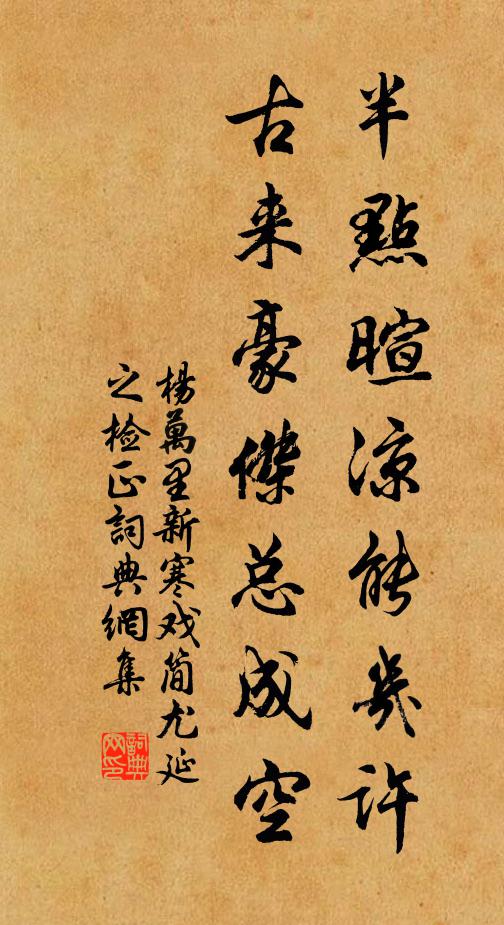 半點暄凉能幾許
古来豪傑总成空
楊萬里新寒戏简尤延
之检正詞典網集
詞典網印